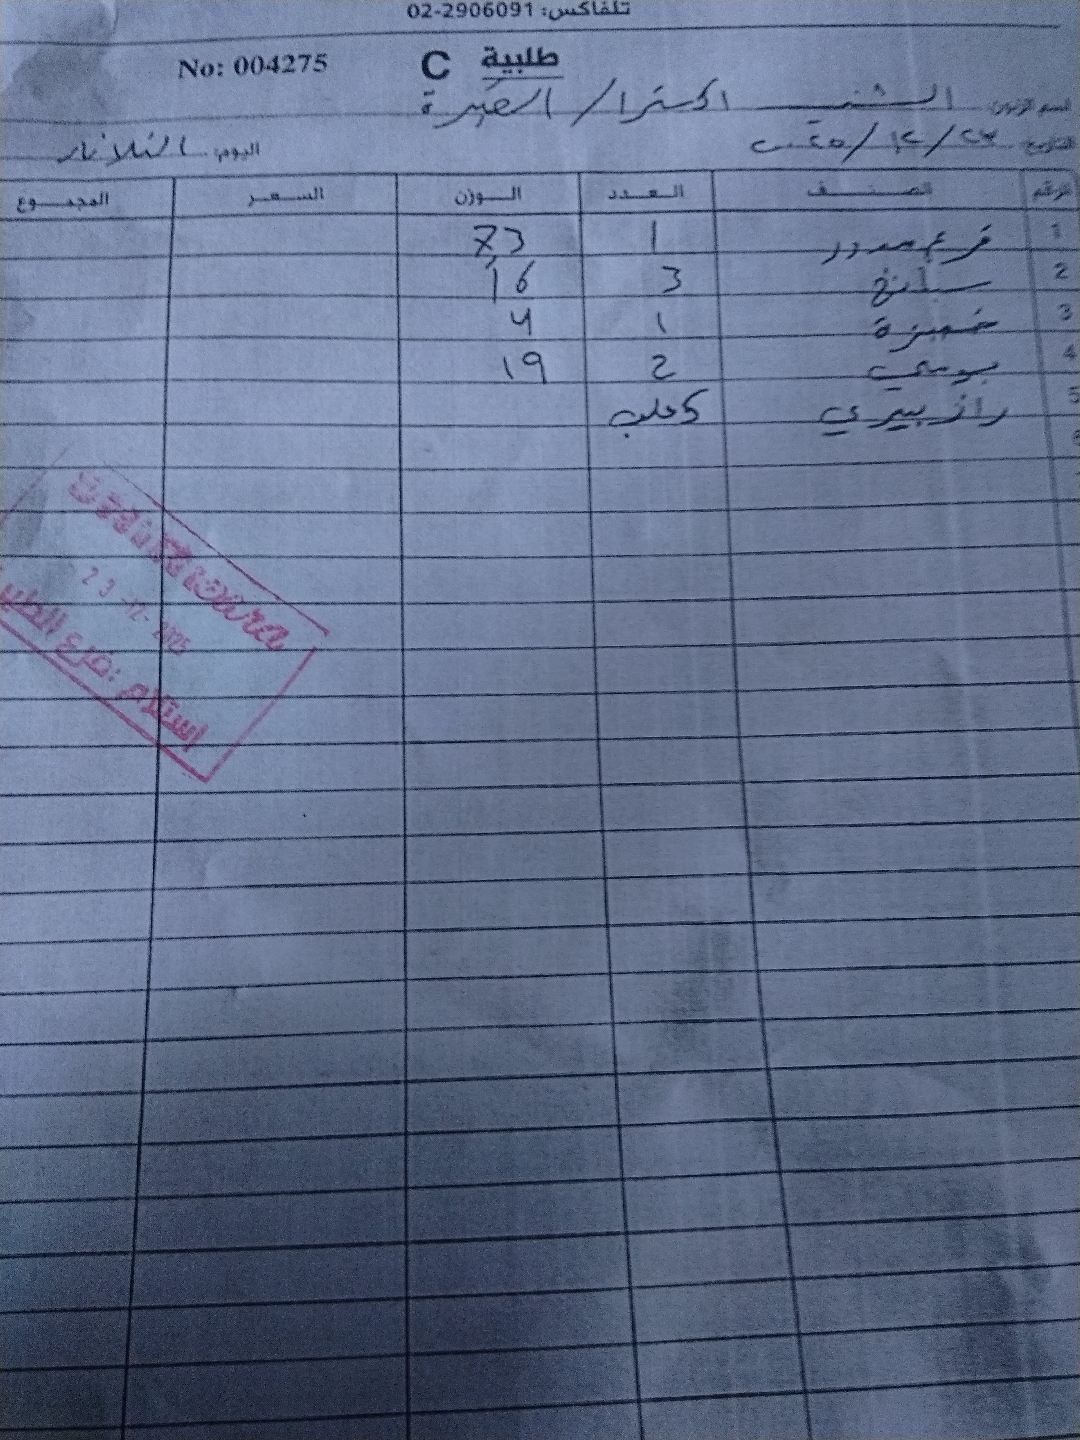 تلفاكس: 02-2906091
طلبية C No: 004275
اسم الزبون: الشني اكسترا / الصغيرة
التاريخ ٢٣/١٢/٢٠٢٥ اليوم: الثلاثاء
الرقم الصنف العدد الوزن السعر المجموع
1 قرع مدور 1 7,3
2 سبانخ 3 16
3 خبيزة 1 4
4 بوملي 2 19
5 راز بيري 5 علب
6
23-12-2025
استلام: فرع الطيره